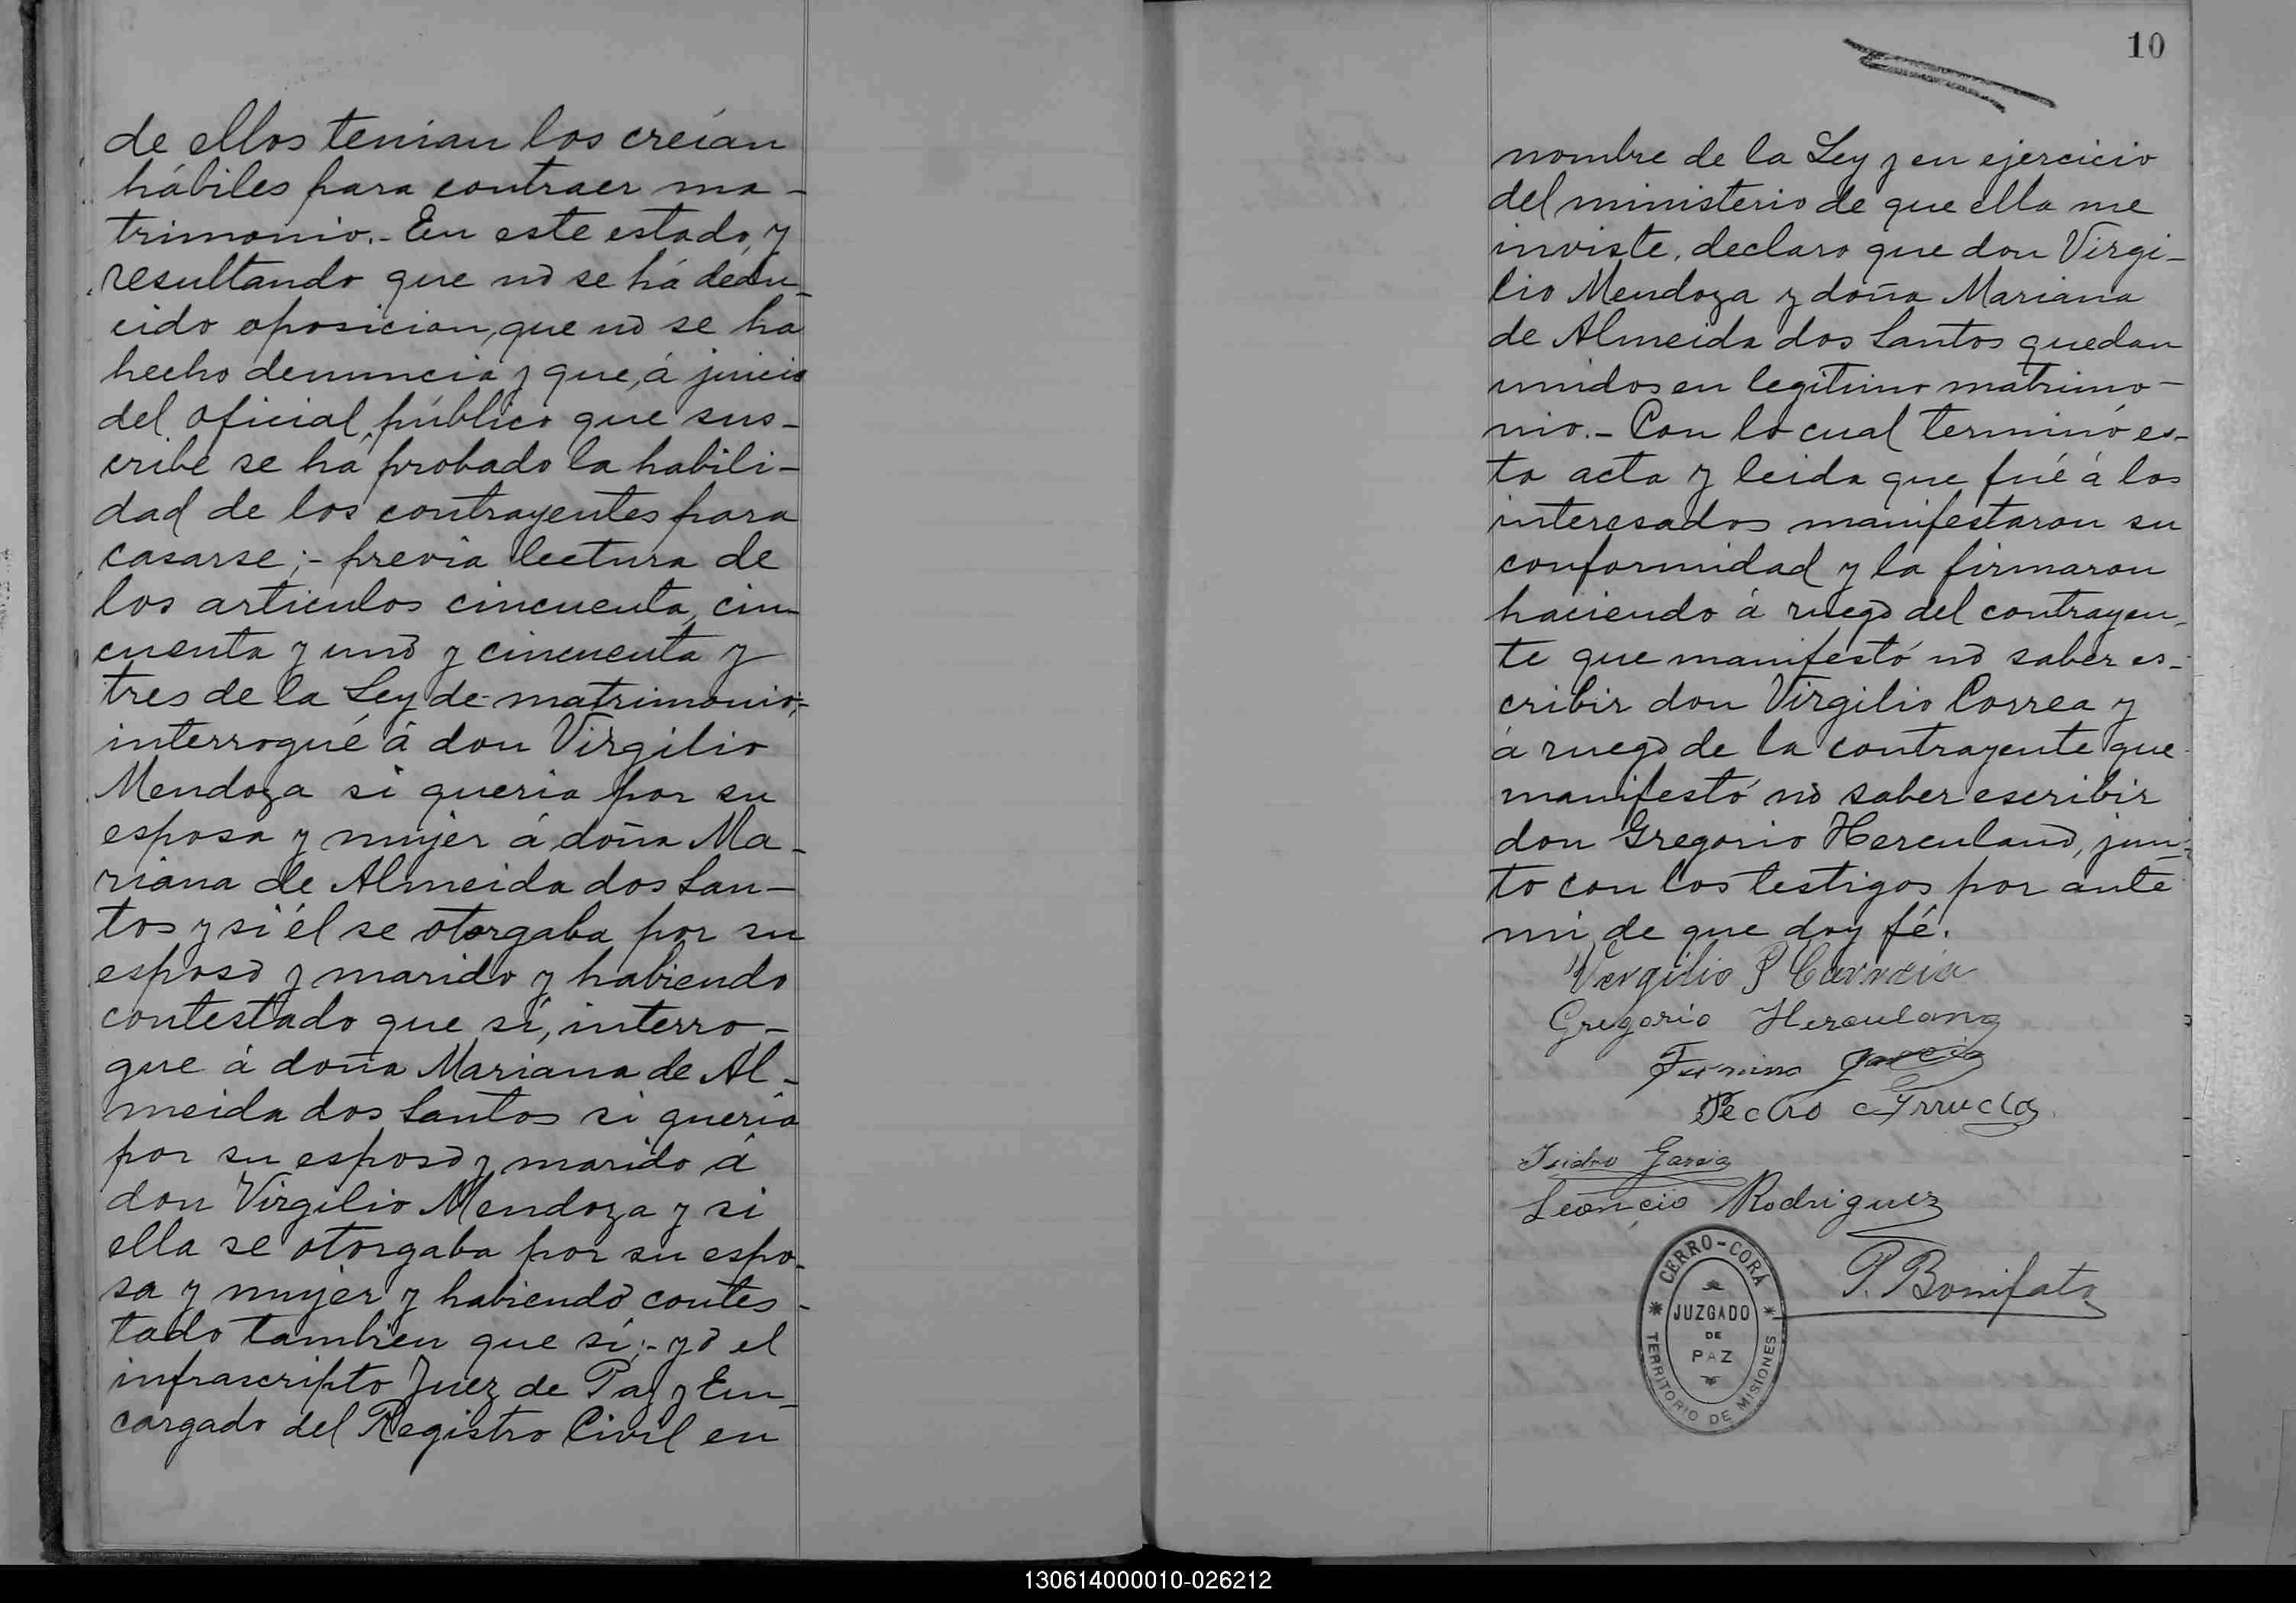 de ellos tenian los creían
hábiles para contraer ma-
trimonio.- En este estado, y
resultando que no se há dedu-
cido oposicion, que no se ha
hecho denuncia y que, á juicio
del oficial público que sus-
cribe se há probado la habili-
dad de los contrayentes para
casarse;- previa lectura de
los articulos cincuenta, cin-
cuenta y uno y cincuenta y
tres de la Ley de matrimonio;-
interrogué á don Virgilio
Mendoza si queria por su
esposa y mujer á doña Ma-
riana de Almeida dos San-
tos y si él se otorgaba por su
esposo y marido y habiendo
contestado que sí, interro-
gue á doña Mariana de Al-
meida dos Santos si quería
por su esposo y marido á
don Virgilio Mendoza y si
ella se otorgaba por su espo-
sa y mujer y habiendo contes-
tado tambien que sí;- yo el
infrascripto Juez de Paz y En-
cargado del Registro Civil en
10
nombre de la Ley y en ejercicio
del ministerio de que ella me
inviste, declaro que don Virgi-
lio Mendoza y doña Mariana
de Almeida dos Santos quedan
unidos en legitimo matrimo-
nio.- Con lo cual terminó es-
ta acta y leida que fué á los
interesados manifestaron su
conformidad y la firmaron
haciendo á ruego del contrayen-
te que manifestó no saber es-
cribir don Virgilio Correa y
á ruego de la contrayente que
manifestó no saber escribir
don Gregorio Herculano, jun-
to con los testigos por ante
mi, de que doy fé.
Vergilio P
Gregorio Herculano
Garcia
Pedro
Isidro Garcia
Leoncio Rodriguez
P. Bonifato
CERRO-CORÁ
JUZGADO
DE
PAZ
TERRITORIO DE MISIONES
130614000010-026212